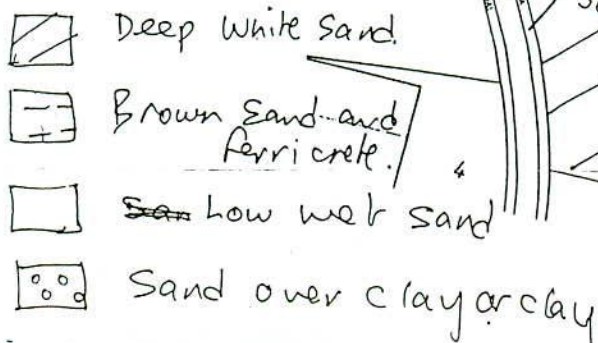 Deep White Sand.
Brown Sand and
ferricrete.
4
San Low wet sand
Sand over clay or clay